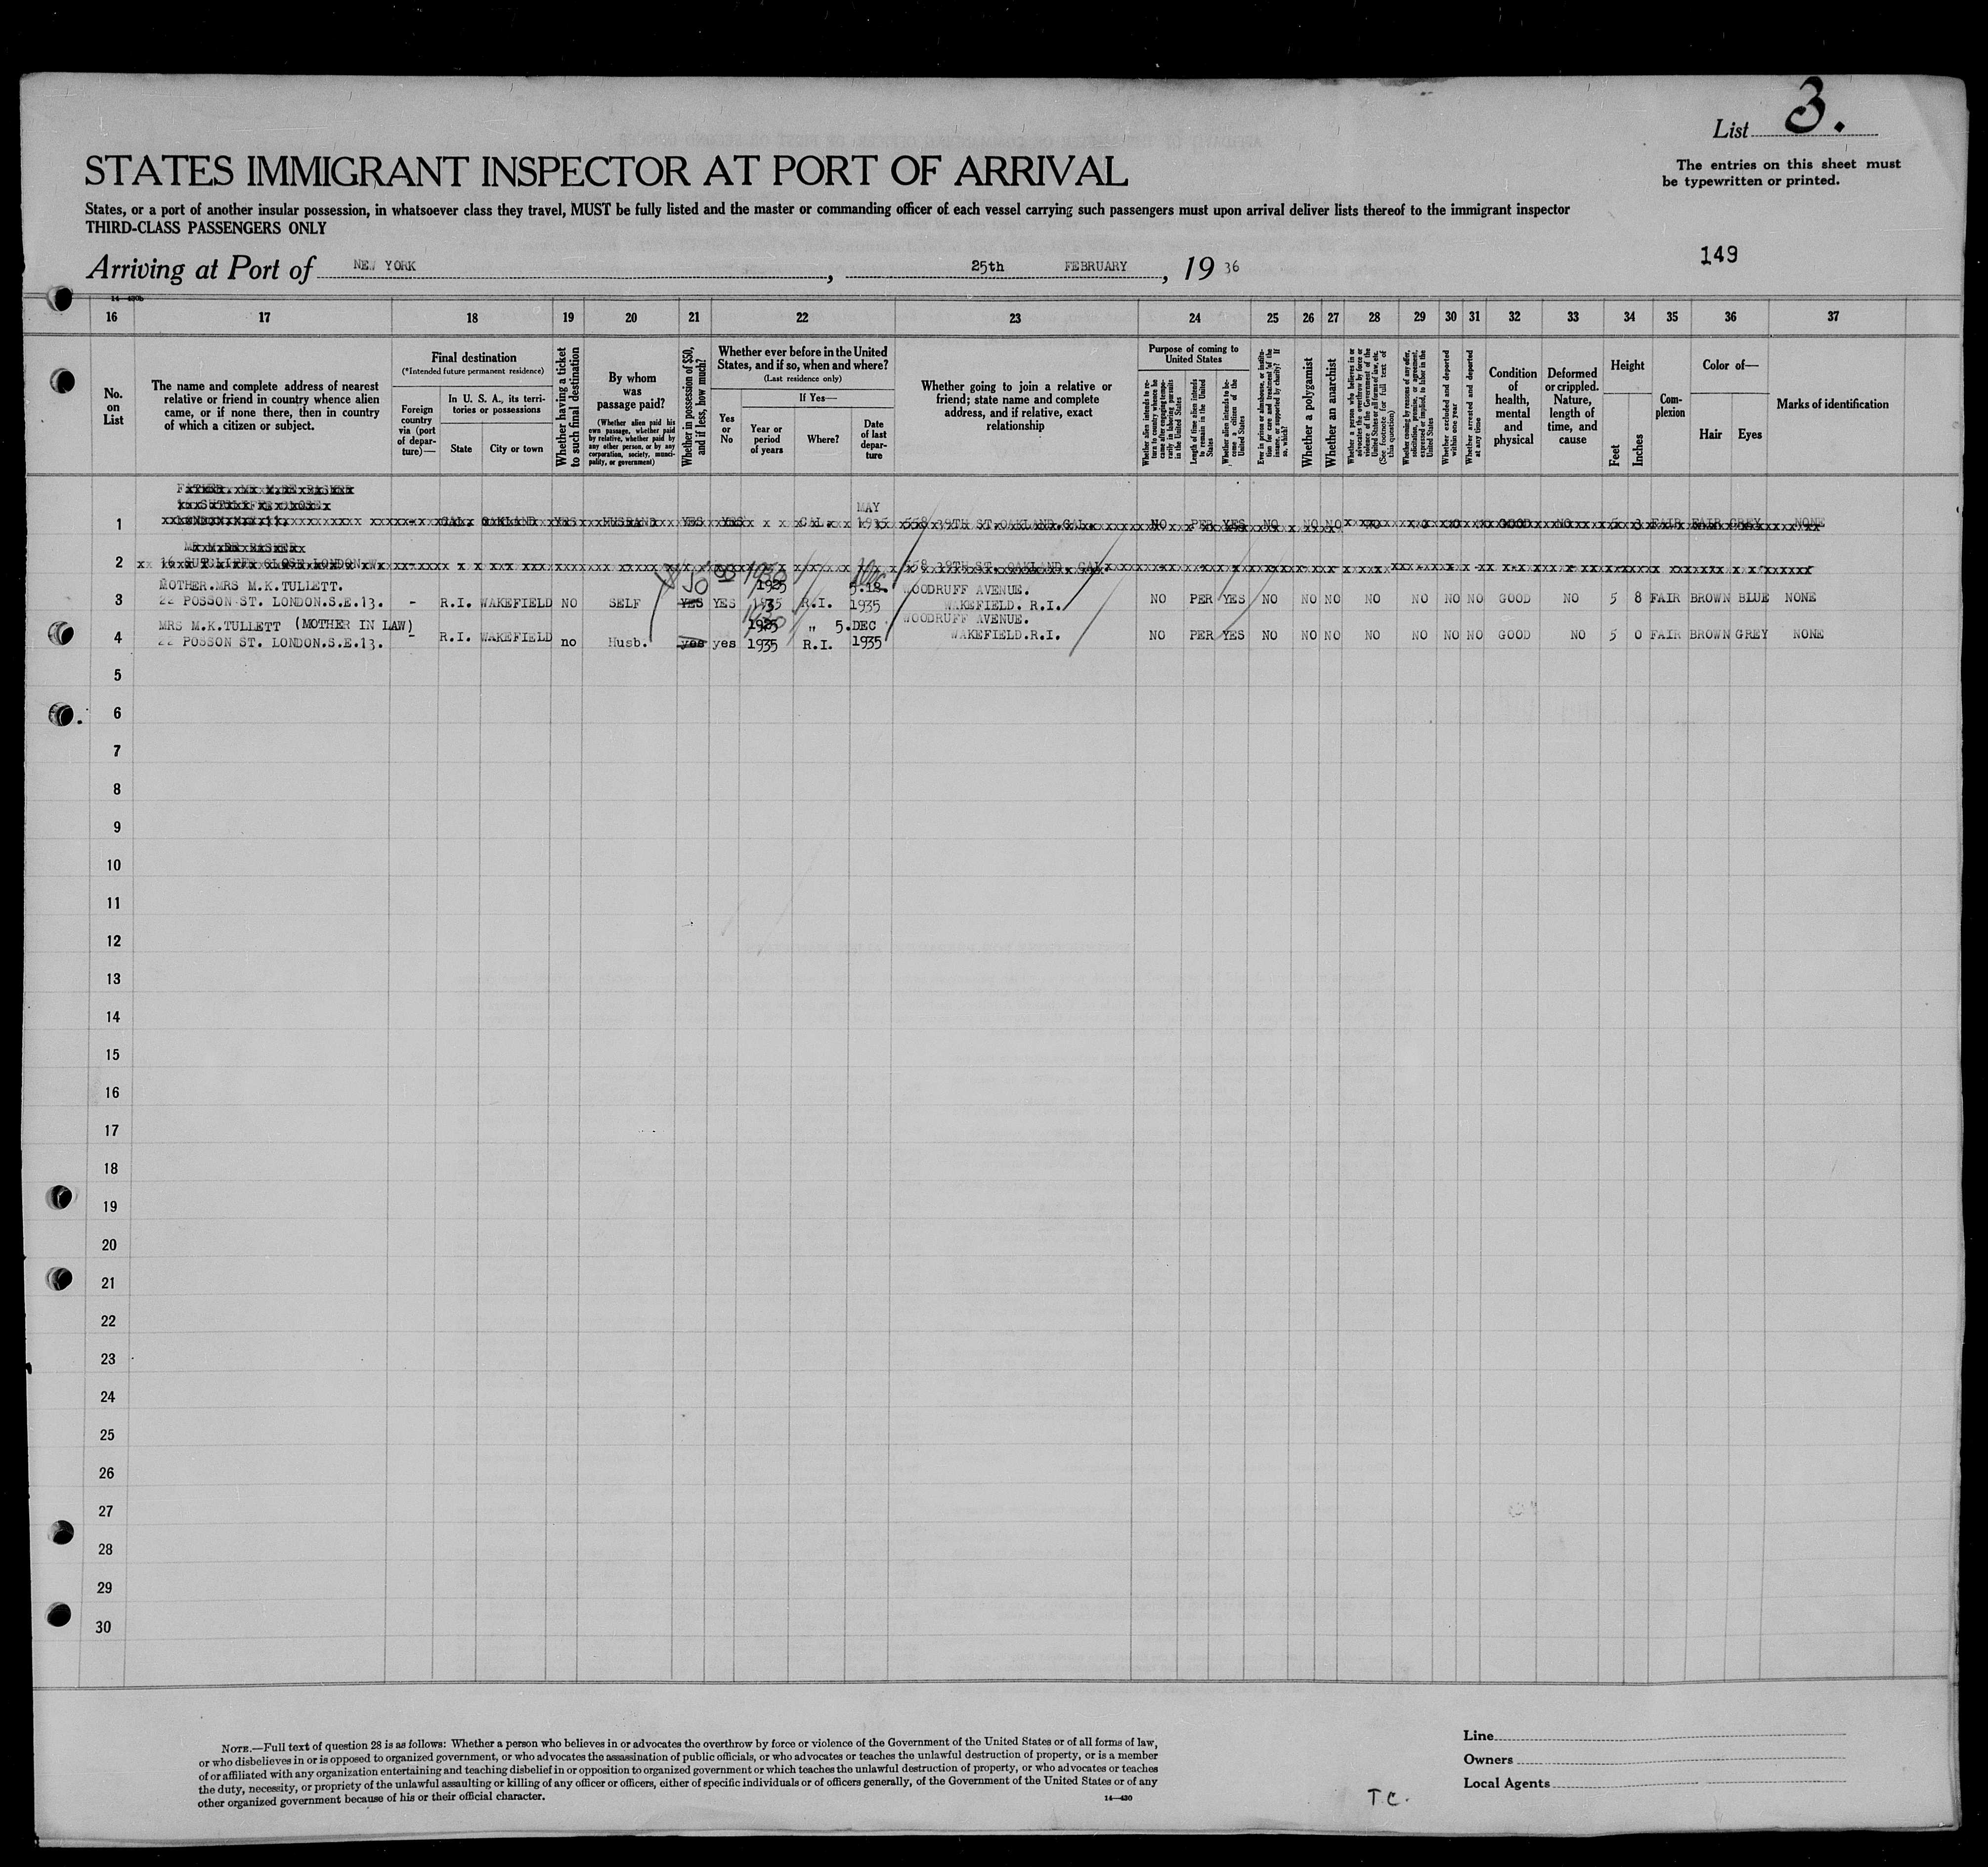 List 3.
The entries on this sheet must
be typewritten or printed.
STATES IMMIGRANT INSPECTOR AT PORT OF ARRIVAL
States, or a port of another insular possession, in whatsoever class they travel, MUST be fully listed and the master or commanding officer of each vessel carrying such passengers must upon arrival deliver lists thereof to the immigrant inspector
THIRD-CLASS PASSENGERS ONLY
149
Arriving at Port of NEW YORK, 25th FEBRUARY, 19 36
16 17 18 19 20 21 22 23 24 25 26 27 28 29 30 31 32 33 34 35 36 37
No. on List
The name and complete address of nearest
relative or friend in country whence alien
came, or if none there, then in country
of which a citizen or subject.
Final destination
(*Intended future permanent residence)
Foreign country via (port of departure)—
In U. S. A., its territories or possessions
State
City or town
Whether having a ticket to such final destination
By whom was passage paid?
(Whether alien paid his own passage, whether paid by relative, whether paid by any other person, or by any corporation, society, municipality, or government)
Whether in possession of $50, and if less, how much?
Whether ever before in the United States, and if so, when and where?
(Last residence only)
Yes or No
If Yes—
Year or period of years
Where?
Date of last departure
Whether going to join a relative or
friend; state name and complete
address, and if relative, exact
relationship
Purpose of coming to United States
Whether alien intends to return to country whence he came after engaging temporarily in laboring pursuits in the United States
Length of time alien intends to remain in the United States
Whether alien intends to become a citizen of the United States
Ever in prison or almshouse, or institution for care and treatment of the insane, or supported by charity? If so, which?
Whether a polygamist
Whether an anarchist
Whether a person who believes in or advocates the overthrow by force or violence of the Government of the United States or all forms of law, etc. (See footnote for full text of this question)
Whether coming by reasons of any offer, solicitation, promise, or agreement, expressed or implied, to labor in the United States
Whether excluded and deported within one year
Whether arrested and deported at any time
Condition of health, mental and physical
Deformed or crippled. Nature, length of time, and cause
Height
Feet
Inches
Complexion
Color of—
Hair
Eyes
Marks of identification
1 CAL. OAKLAND YES HUSBAND YES YES CAL. MAY 1935 558 39TH ST. OAKLAND.CAL. NO PER YES NO NO NO NO NO NO GOOD NO 5 3 FAIR FAIR GREY NONE
2 16 SUTCLIFFE CLOSE LONDON 558 39TH ST. OAKLAND CAL
MOTHER.MRS M.K.TULLETT. $50 00 1925 5.12. WOODRUFF AVENUE.
3 22 POSSON ST. LONDON.S.E.13. - R.I. WAKEFIELD NO SELF YES YES 1935 R.I. 1935 WAKEFIELD. R.I. NO PER YES NO NO NO NO NO NO NO GOOD NO 5 8 FAIR BROWN BLUE NONE
MRS M.K.TULLETT (MOTHER IN LAW) 1925 " 5.DEC WOODRUFF AVENUE.
4 22 POSSON ST. LONDON.S.E.13. - R.I. WAKEFIELD no Husb. yes yes 1935 R.I. 1935 WAKEFIELD.R.I. NO PER YES NO NO NO NO NO NO NO GOOD NO 5 0 FAIR BROWN GREY NONE
5
6
7
8
9
10
11
12
13
14
15
16
17
18
19
20
21
22
23
24
25
26
27
28
29
30
NOTE.—Full text of question 28 is as follows: Whether a person who believes in or advocates the overthrow by force or violence of the Government of the United States or of all forms of law,
or who disbelieves in or is opposed to organized government, or who advocates the assassination of public officials, or who advocates or teaches the unlawful destruction of property, or is a member
of or affiliated with any organization entertaining and teaching disbelief in or opposition to organized government or which teaches the unlawful destruction of property, or who advocates or teaches
the duty, necessity, or propriety of the unlawful assaulting or killing of any officer or officers, either of specific individuals or of officers generally, of the Government of the United States or of any
other organized government because of his or their official character.
14—430
T.C.
Line
Owners
Local Agents